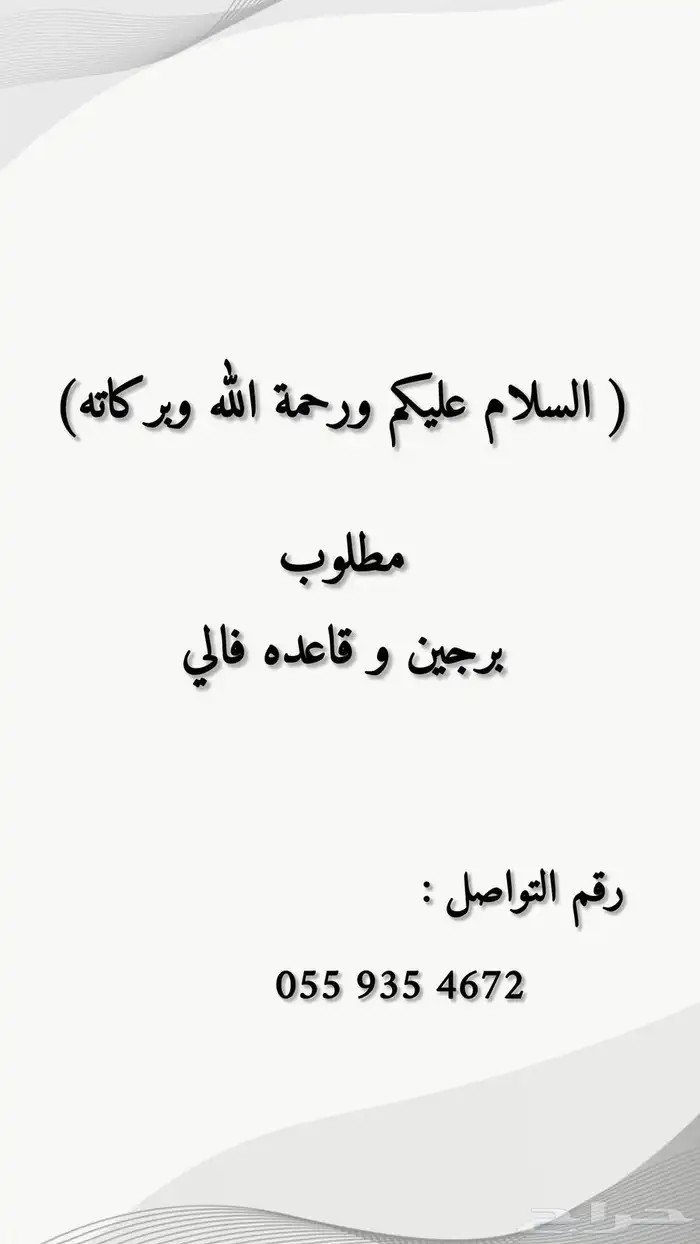 ( السلام عليكم ورحمة الله وبركاته)
مطلوب
برجين و قاعده فالي
رقم التواصل :
055 935 4672
حراج